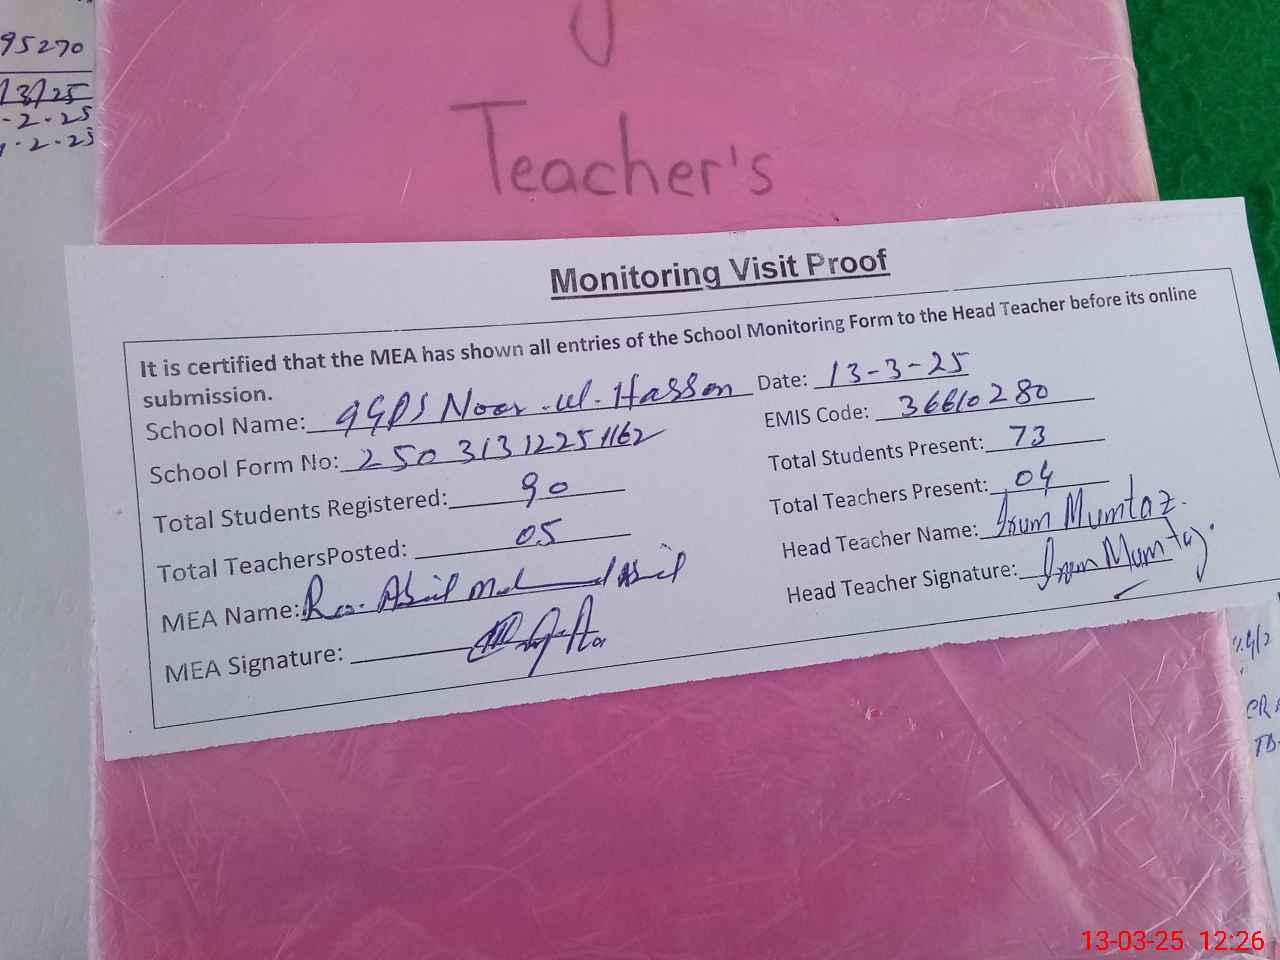 95270
13/25
-2-25
-2-25
Teacher's
Monitoring Visit Proof
It is certified that the MEA has shown all entries of the School Monitoring Form to the Head Teacher before its online
submission.
School Name: GGPS Noor-ul-Hassan Date: 13-3-25
School Form No: 250 3131225 1162 EMIS Code: 36610280
Total Students Registered: 90 Total Students Present: 73
Total TeachersPosted: 05 Total Teachers Present: 04
MEA Name: Head Teacher Name: Irum Mumtaz.
MEA Signature: Head Teacher Signature: Irum Mumtaz.
13-03-25 12:26